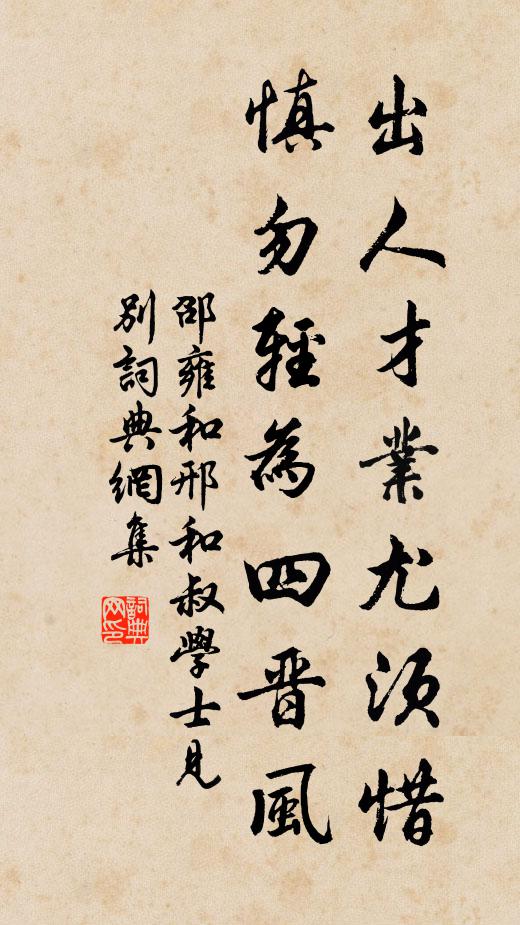 出人才業尤須惜
慎勿輕為四晋風
邵雍和邢和叔學士見
別詞典網集
詞典
网印